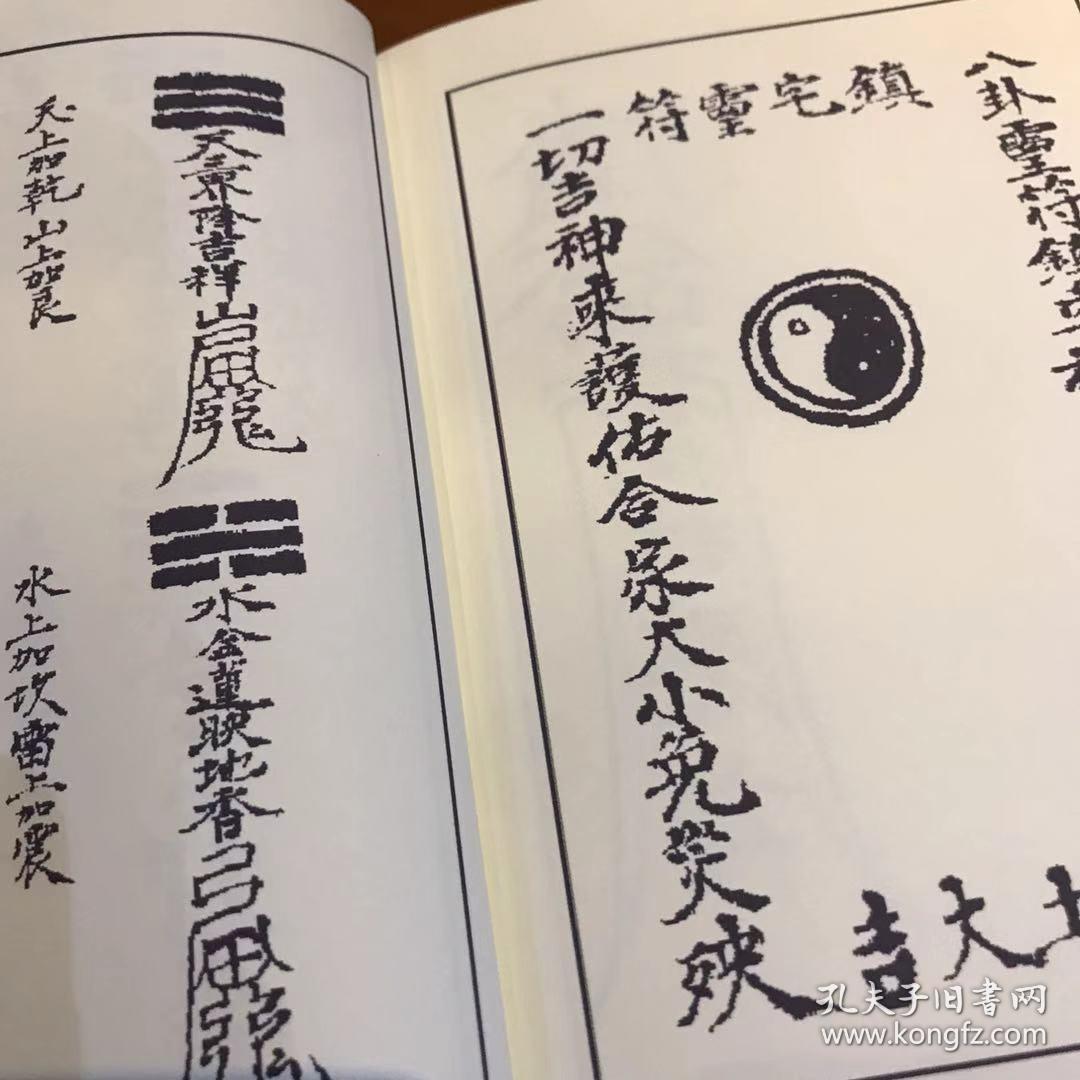 八卦靈符鎮
鎮宅靈符
一切吉神來護佑合家大小免災殃
大吉
天三界降吉祥
天上加乾山上加艮
水金蓮映地香
水上加坎雷上加震
孔夫子旧书网
www.kongfz.com